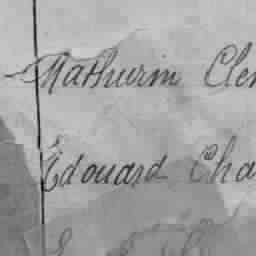 Mathurin Cle
Édouard Cha